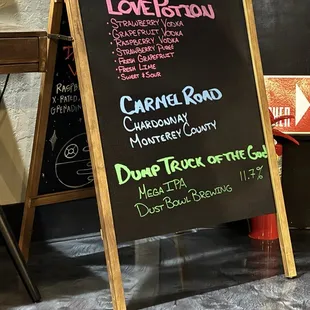 LOVE POTION
- STRAWBERRY VODKA
- GRAPEFRUIT VODKA
- RASPBERRY VODKA
- STRAWBERRY PUREE
- FRESH GRAPEFRUIT
- FRESH LIME
- SWEET & SOUR
CARMEL ROAD
CHARDONNAY
MONTEREY COUNTY
DUMP TRUCK OF THE GODS
MEGA IPA
DUST BOWL BREWING 11.7%